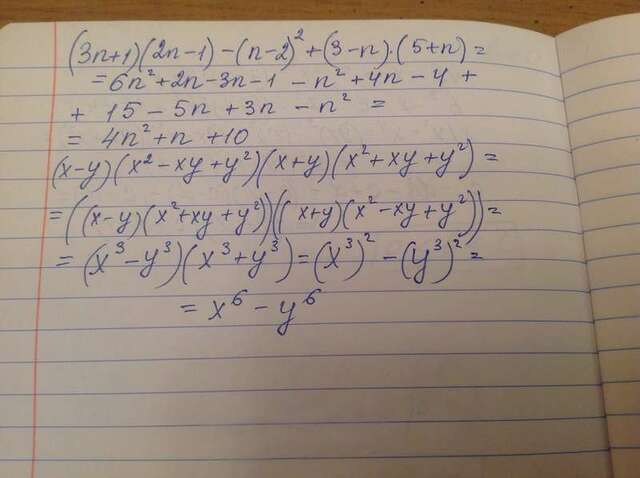 (3n+1)(2n-1)-(n-2)²+(3-n)·(5+n)=
=6n²+2n-3n-1-n²+4n-4+
+15-5n+3n-n²=
=4n²+n+10
(x-y)(x²-xy+y²)(x+y)(x²+xy+y²)=
=((x-y)(x²+xy+y²))((x+y)(x²-xy+y²))=
=(x³-y³)(x³+y³)=(x³)²-(y³)²=
=x⁶-y⁶